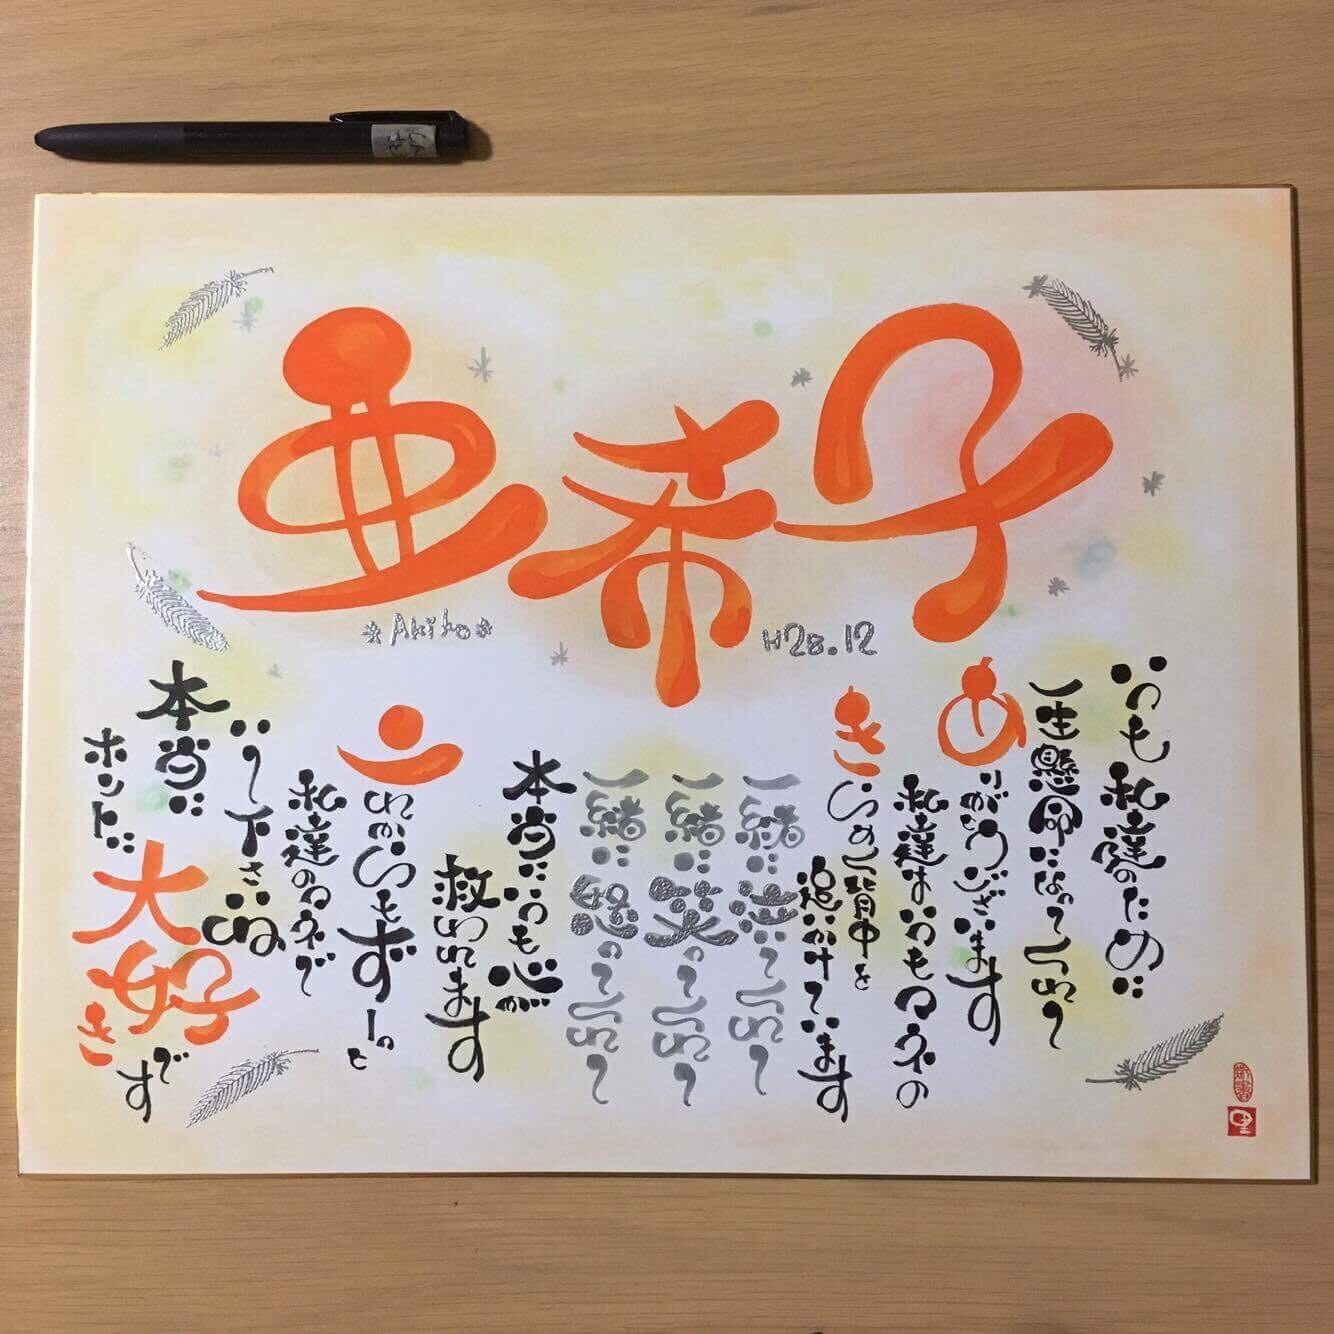 亜希子
*Akiko*
H28.12
いつも私達のために
一生懸命になってくれて
ありがとうございます
私達はいつもアネの
きらめく背中を
追いかけています
一緒に泣いてくれて
一緒に笑ってくれて
一緒に怒ってくれて
本当にいつも心が
救われます
これからもずーっと
私達のアネで
いて下さいね
本当に
ホントに
大好きです
里